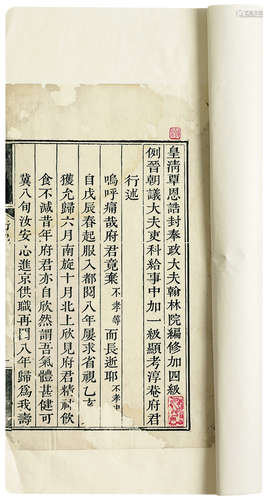 皇清覃恩誥封奉政大夫翰林院編修加四級
例晉朝議大夫吏科給事中加一級顯考淳菴府君
行述
嗚呼痛哉府君竟棄不孝等而長逝耶不孝中
自戊辰春起服入都閱八年屢求省視乙亥
獲允歸六月南旋十月北上欣見府君精神飲
食不減昔年府君亦自欣然謂吾氣體甚健可
冀八旬汝安心進京供職再閱八年歸為我壽